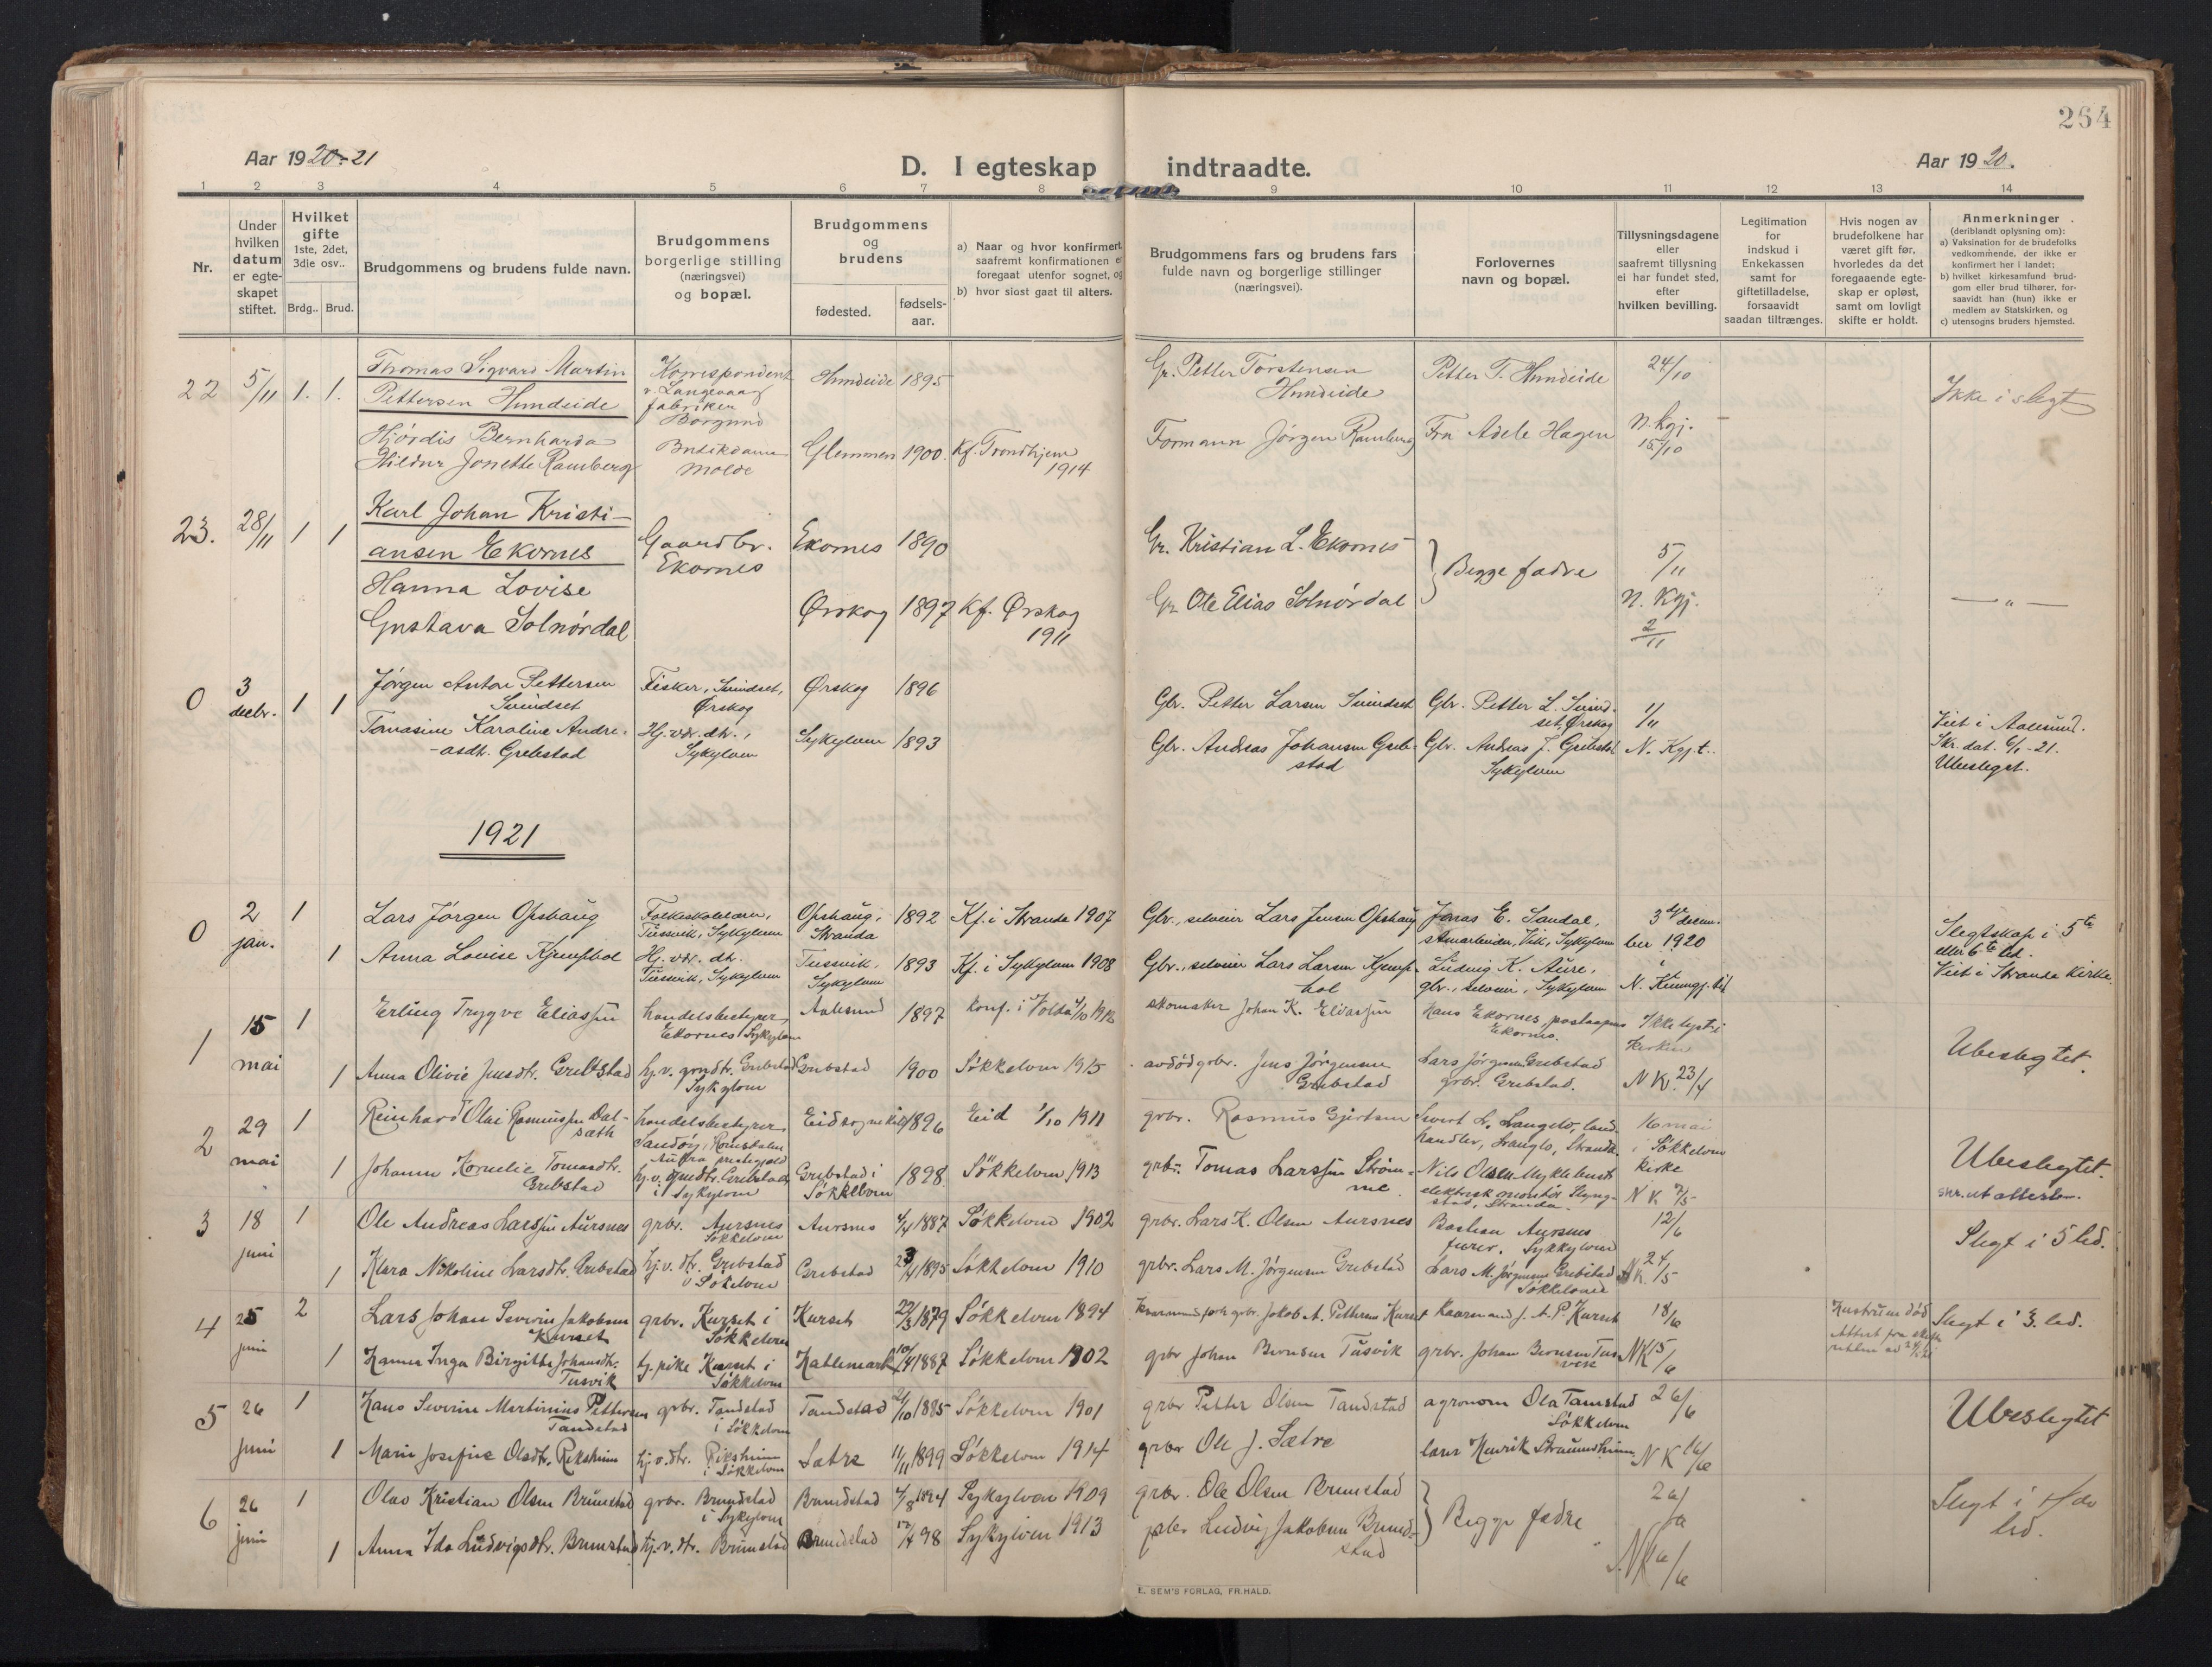 264
Aar 1920-21
D. I egteskap indtraadte.
Aar 1920.
1 2 3 4 5 6 7 8 9 10 11 12 13 14
Nr.
Under hvilken datum er egte-skapet stiftet.
Hvilket gifte 1ste, 2det, 3die osv..
Brdg.. Brud.
Brudgommens og brudens fulde navn.
Brudgommens borgerlige stilling (næringsvei) og bopæl.
Brudgommens og brudens
fødested.
fødsels-aar.
a) Naar og hvor konfirmert saafremt konfirmationen er foregaat utenfor sognet, og
b) hvor sidst gaat til alters.
Brudgommens fars og brudens fars fulde navn og borgerlige stillinger (næringsvei).
Forlovernes navn og bopæl.
Tillysningsdagene eller saafremt tillysning ei har fundet sted, efter hvilken bevilling.
Legitimation for indskud i Enkekassen samt for giftetilladelse, forsaavidt saadan tiltrænges.
Hvis nogen av brudefolkene har været gift før, hvorledes da det foregaaende egte-skap er opløst, samt om lovligt skifte er holdt.
Anmerkninger
(deriblandt oplysning om):
a) Vaksination for de brudefolks vedkommende, der ikke er konfirmert her i landet;
b) hvilket kirkesamfund brud-gom eller brud tilhører, for-saavidt han (hun) ikke er medlem av Statskirken, og
c) utensogns bruders hjemsted.
22 5/11 1. 1. Thomas Sigvard Martin Pettersen Hundeide
Korrespondent v. Langevaag fabriker Borgund
Hundeide 1895
Gr. Petter Torstensen Hundeide
Petter T. Hundeide
24/10
Ikke i slegt
Hjørdis Bernharda Hildur Jonette Ramberg
Butikdame Molde
Glemmen 1900. Kf. Trondhjem 1914
Formann Jørgen Ramberg
Fru Adele Hagen
N. kgj. 15/10
23. 28/11 1 1 Karl Johan Kristi-
ansen Ekornes
Gaardbr. Ekornes
Ekornes 1890
Gr. Kristian L. Ekornes
Begge fædre
5/11
Hanna Lovise
Gustava Solnørdal
Ørskog 1897 Kf. Ørskog 1911
Gr. Ole Elias Solnørdal
N. Kgj. 2/11
— " —
0 3 decbr. 1 1 Jørgen Anton Pettersen
Fisker, Ørskog
Ørskog 1896
Gbr. Petter Larsen
Gbr. Petter L. Ørskog
1/11
Tomasine Karoline Andre-
asdt. Grebstad
Hj.vær. dtr., Sykylven
Sykylven 1893
Gbr. Andreas Johansen Greb-
stad
Gbr. Andreas J. Grebstad Sykylven
N. Kgj.t.
Viet i Aalesund.
Skr. dat. 6/1-21.
Ubeslegt.
1921
0 2 jan. 1 Lars Jørgen Opshaug
Folkeskolelærer, Tussvik, Sykylven
Opshaug, Stranda 1892 Kf. i Stranda 1907
Gbr., selveier Lars Jensen Opshaug
Jonas E. Sandal, Vik, Sykylven
3die decem-
ber 1920
Slegtskap i 5te
eller 6te led.
Viet i Stranda Kirke
1 Anna Lovise Kjemphol
Hj. vær. dtr. Tussvik, Sykylven
Tussvik, Sykylven 1893 Kf. i Sykylven 1908
Gbr., selveier Lars Larsen Kjemp-
hol
Ludvig K. Aure, gbr., selveier, Sykylven
1 15 mai 1 Erling Trygve Eliassen
handelsbestyrer, Ekornes, Sykylven
Aalesund 1897 konf. i Volda 4/10 1912
skomaker Johan K. Eliassen
Hans Ekornes, postaapner Ekornes.
Ikke lyst i kirken
Ubeslegtet.
1 Anna Olivie Jensdtr. Grebstad
hj.v. grndtr. Grebstad Sykylven
Grebstad 1900 Søkkelven 1915
avdød grbr. Jens Jørgensen Grebstad
Lars Jørgensen Grebstad grbr. Grebstad.
N K. 23/4
2 29 mai 1 Reinhard Olai Rasmussen Dal-
sæth
handelsbestyrer, Sandøy, Romsdalen Aukra prestegjeld
1896 Eid 1/10 1911
grbr. Rasmus Gjertsen
Sivert L. Langlo, land-
handler, Langlo, Stranda.
16 mai i Søkkelven kirke
Ubeslegtet.
1 Johanne Kornelie Tomasdtr. Grebstad
hj.v. grndtr. Grebstad i Sykylven
Grebstad i Søkkelven 1898 Søkkelven 1913
grbr. Tomas Larssen Strøm-
me.
Nils Olsen Myklebust elektrisk montør Stranda.
N K 7/5
3 18 juni 1 Ole Andreas Larssen Aursnes
grbr. Aursnes Søkkelven
Aursnes 1887 Søkkelven 1902
grbr. Lars K. Olsen Aursnes
Bastian Aursnes furer. Sykkylven
12/6
Slegt i 5 led.
1 Klara Nikoline Larsdtr. Grebstad
hj.v. dtr. Grebstad i Søkelven
Grebstad 1895 Søkkelven 1910
grbr. Lars M. Jørgensen Grebstad
Lars M. Jørgensen Grebstad Søkkelven
NK. 24/5
4 25 juni 2 Lars Johan Severin Jakobsen Kurset
grbr. Kurset i Søkkelven
Kurset 22/3 1879 Søkkelven 1894
grbr. Jakob A. Pettersen Kurset
Kaarmand J. A. P. Kurset
18/6
Hustruen død
Slegt i 3. led.
1 Hanna Inga Birgitte Johansdtr. Tusvik
tj. pike Kurset i Søkkelven
10/4 1887 Søkkelven 1902
grbr Johan Bernsen Tusvik
grbr. Johan Bernsen Tus-
vik
NK 15/6
5 26 juni 1 Hans Severin Martinius Pettersen Tandstad
grbr. Tandstad i Søkkelven
Tandstad 21/10 1885 Søkkelven 1901
grbr Petter Olsen Tandstad
agronom Ola Tandstad Søkkelven
26/6
Ubeslegtet
1 Marie Josefine Olsdtr. Riksheim
hj.v.dtr. Riksheim i Søkkelven
Sætre 11/11 1899 Søkkelven 1914
grbr Ole J. Sætre
lærer Henrik Straumsheim
N K 16/6
6 26 juni 1 Olav Kristian Olsen Brunstad
grbr. Brundstad i Sykylven
Brundstad 4/8 1894 Sykylven 1909
grbr. Ole Olsen Brunstad
Begge fædre
26/6
Slegt i 4de
led.
1 Anna Ida Ludvigsdtr. Brunstad
hj.v.dtr. Brunstad
Brundstad 98 Sykylven 1913
grbr Ludvig Jakobsen Brund-
stad
N.K 16/6
E. SEM'S FORLAG, FR.HALD.